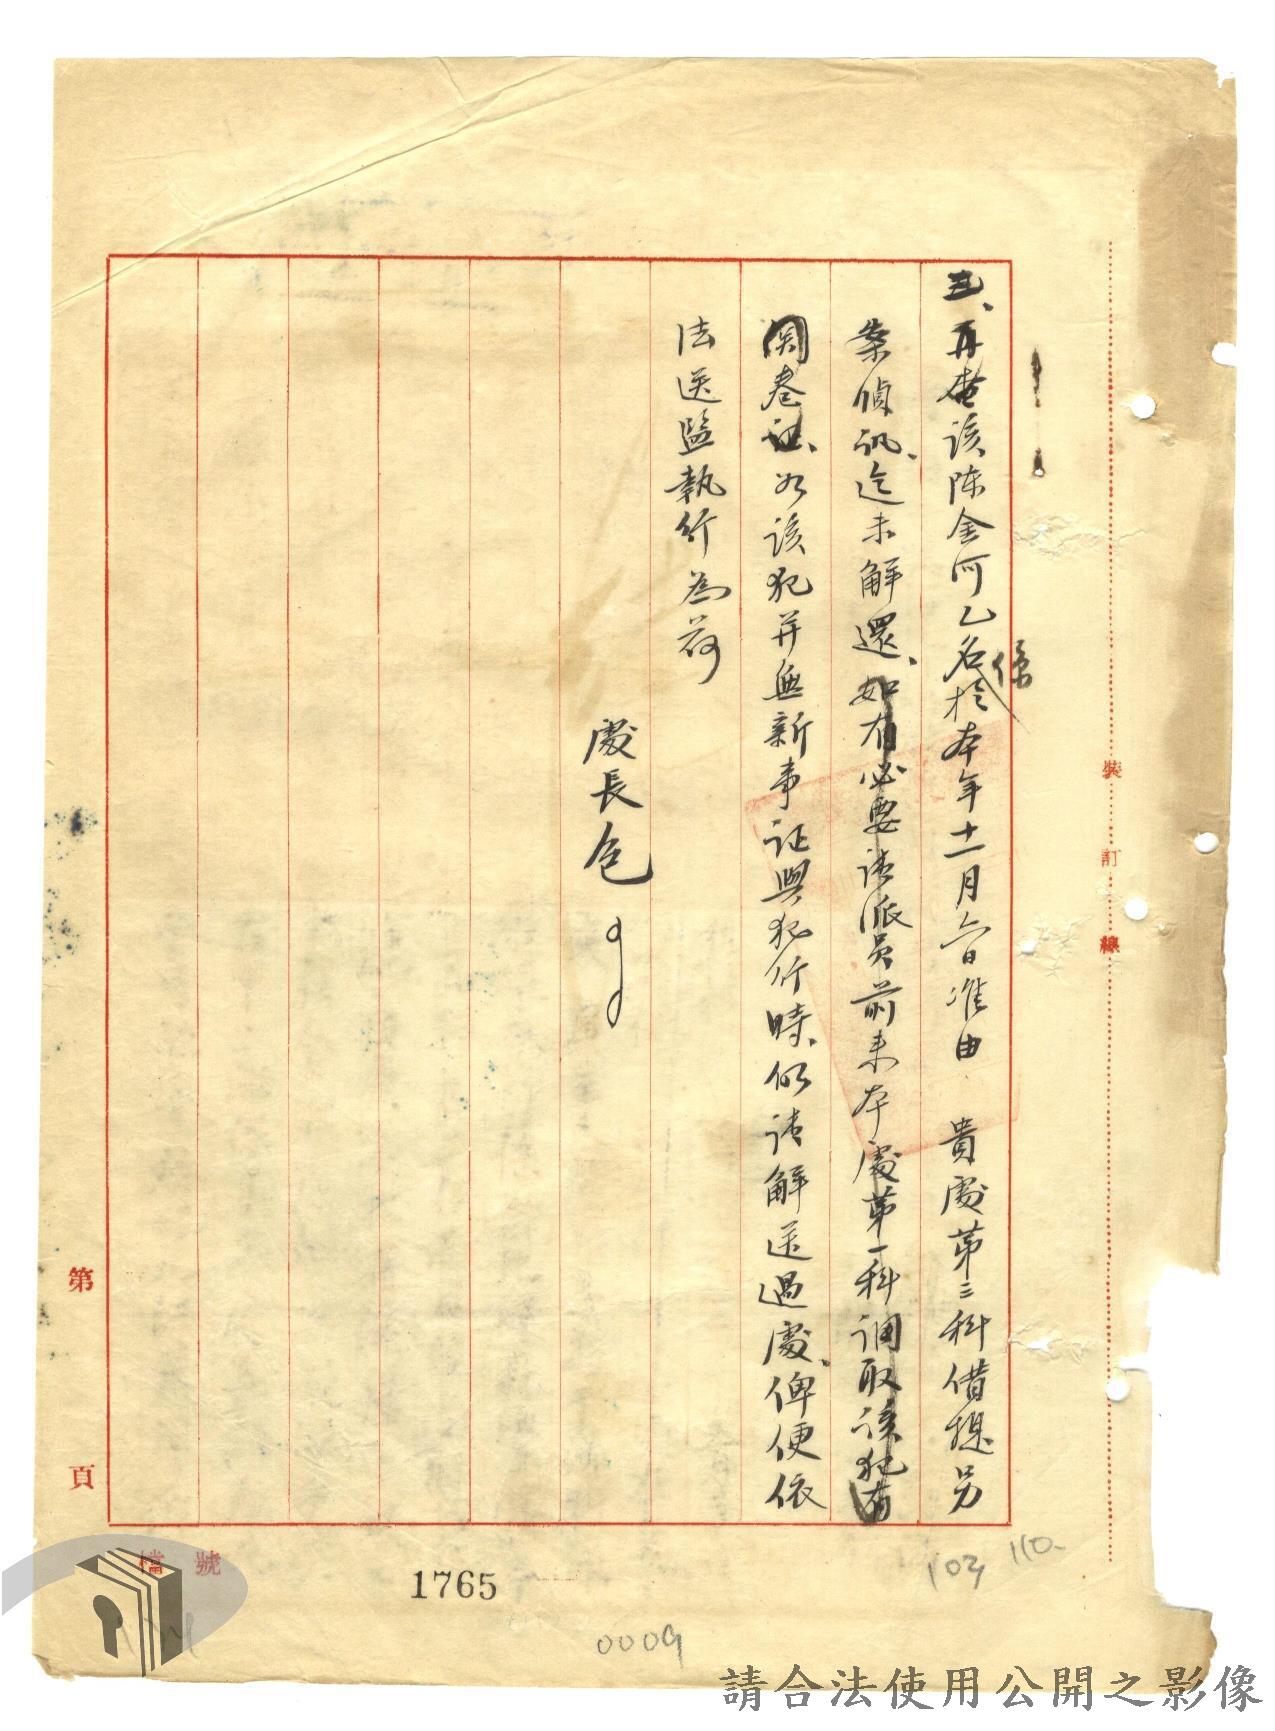 三、再查該陈金河乙名係於本年十一月六日准由　貴處第三科借提另
案偵訊、迄未解還、如有必要請派員前来本處第一科调取該犯有
関卷证、如該犯并無新事证與犯行時、仍請解送過處、俾便依
法送監執行為荷
處長包
裝訂線
第頁
檔號
1765
103
110
0009
請合法使用公開之影像